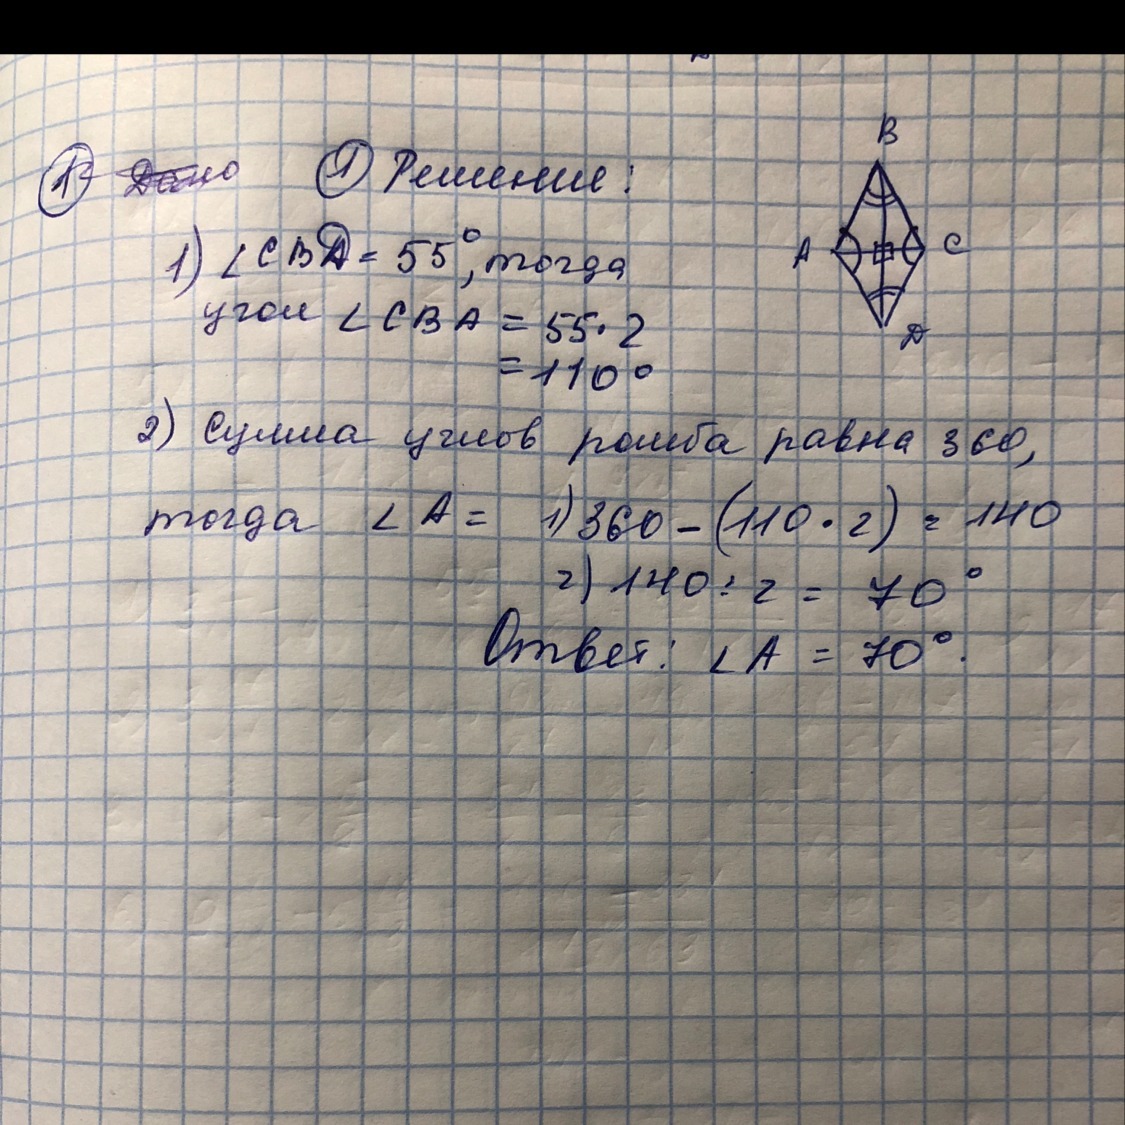 1 Дано 1 Решение:
1) ∠CBD = 55°, тогда
угол ∠CBA = 55·2
= 110°
2) Сумма углов ромба равна 360,
тогда ∠A = 1) 360 - (110·2) = 140
2) 140 : 2 = 70°
Ответ: ∠A = 70°.
B
A
C
D